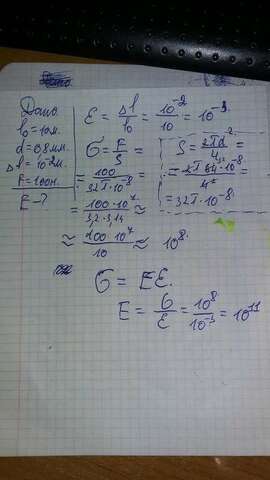 Дано:
l₀ = 10м.
d = 0,8мм.
Δl = 10⁻²м.
F = 100н.
E - ?
ε = Δl / l₀ = 10⁻² / 10 = 10⁻³
σ = F / S =
= 100 / 32π·10⁻⁸ =
= 100·10⁷ / 3,2·3,14 ≈
≈ 100·10⁷ / 10 ≈ 10⁸.
S = 2πd² / 4 =
= 2π 64·10⁻⁸ / 4 =
= 32π·10⁻⁸
σ = Eε.
E = σ / ε = 10⁸ / 10⁻³ = 10¹¹